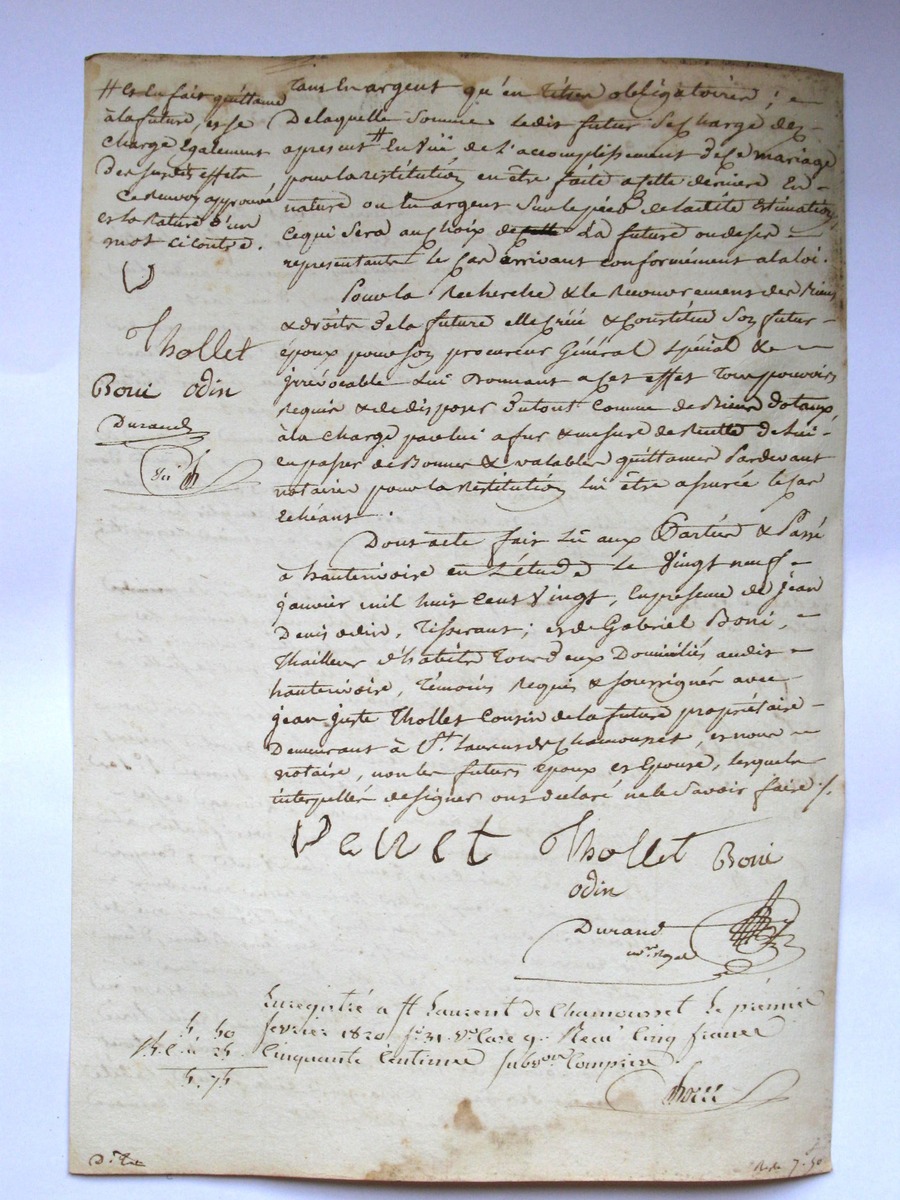 # et en fait quittance
à la future, et se
charge également
des susdits effets
ce renvoy approuvé
et la rature d'un
mot ci contre.
V
Thollet
Boni odin
Durand
tant en argent qu'en titres obligatoires ; 
De laquelle somme ledit futur se charge dez
apresent # en vüe de l'accomplissement de ce mariage
pour la restitution en être faite a cette derniere en
nature ou en argent sur le pied de ladite estimation
ce qui sera au choix de la future ou de ses
representants le cas arrivant conformément a la loi.
Pour la Recherche & le Recouvrement des Biens
& droits de la future elle créé & constitue son futur
époux pour son procureur Général spécial &
irrévocable lui Donnant a cet effet Tous pouvoirs
Requis & de disposer du tout comme de Biens dotaux,
à la charge par lui a fur & mesure de Recette de lui
en passer de Bonnes & valables quittances Pardevant
notaires pour la restitution lui être assurée le cas
Echéant.
Dont acte fait Lû aux Parties & Passé
à hauterivoire en L'étude le Vingt neuf
janvier mil huit cent Vingt, En presence de jean
Denis odin, Tisserant ; et de Gabriel Boni,
Thailleur d'habits Tous deux Domiciliés audit
hauterivoire, Témoins Requis & soussignés avec
jean juste Thollet Cousin de la future propriétaire
Demeurant à St. Laurent de Chamousset, et nous
notaire, non les futurs époux et Epouse, lesquels
interpellés de signer ont declaré ne le savoir faire ./.
Thollet Boni
odin
Durand
nore. Royal
Enregistré a St Laurent de Chamousset le premier
fevrier 1820 fo. 31. Vo. Case 9. Recu Cinq francs
Cinquante Centimes subvon Comprise
5. 50
5. 75
7-50